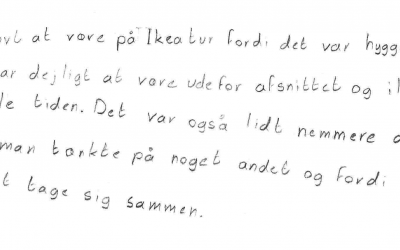 ovt at være på Ikeatur fordi det var hygg
ar dejligt at være udefor afsnittet og i
le tiden. Det var også lidt nemmere a
man tænkte på noget andet og fordi
t tage sig sammen.